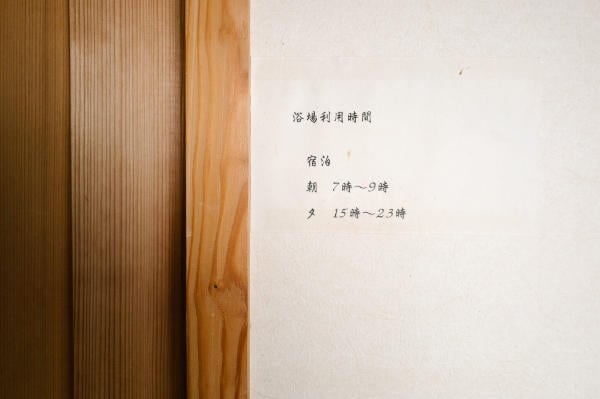 浴場利用時間
宿泊
朝 7時～9時
夕 15時～23時